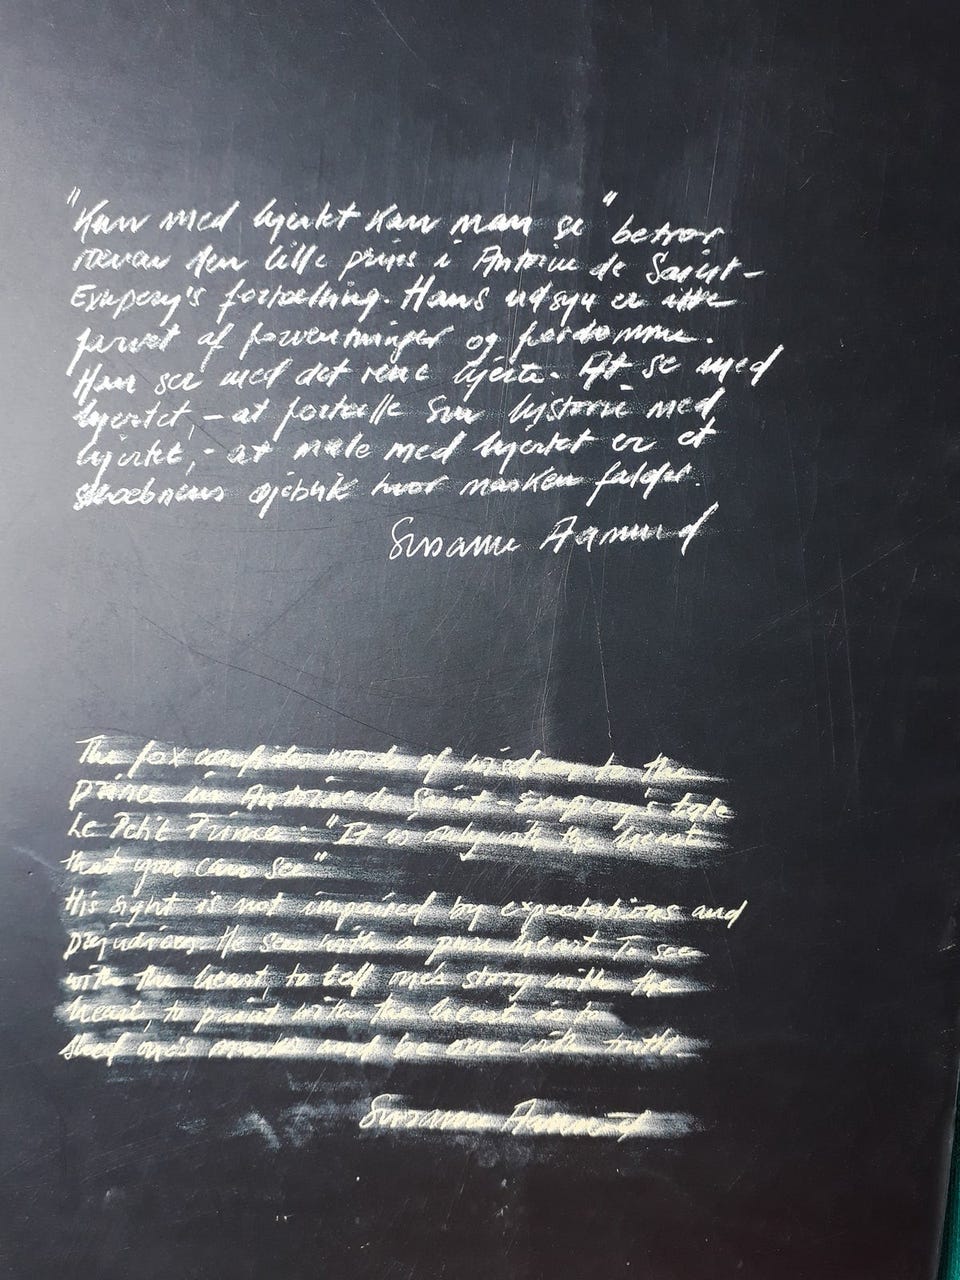 "Kun med hjertet kan man se" betror
ræven den lille prins i Antoine de Saint-
Exupery's fortælling. Hans udsyn er ikke
farvet af forventninger og fordomme.
Han ser med det rene hjerte. At se med
hjertet, - at fortælle sin historie med
hjertet, - at male med hjertet er et
skæbnens øjeblik hvor masken falder.
Susanne Aamund
The fox confides words of wisdom to the
prince in Antoine de Saint-Exupery's tale
Le Petit Prince. "It is only with the heart
that you can see"
His sight is not impaired by expectations and
prejudices. He sees with a pure heart. To see
with the heart, to tell one's story with the
heart, to paint with the heart is to
shed one's mask and be one with truth.
Susanne Aamund